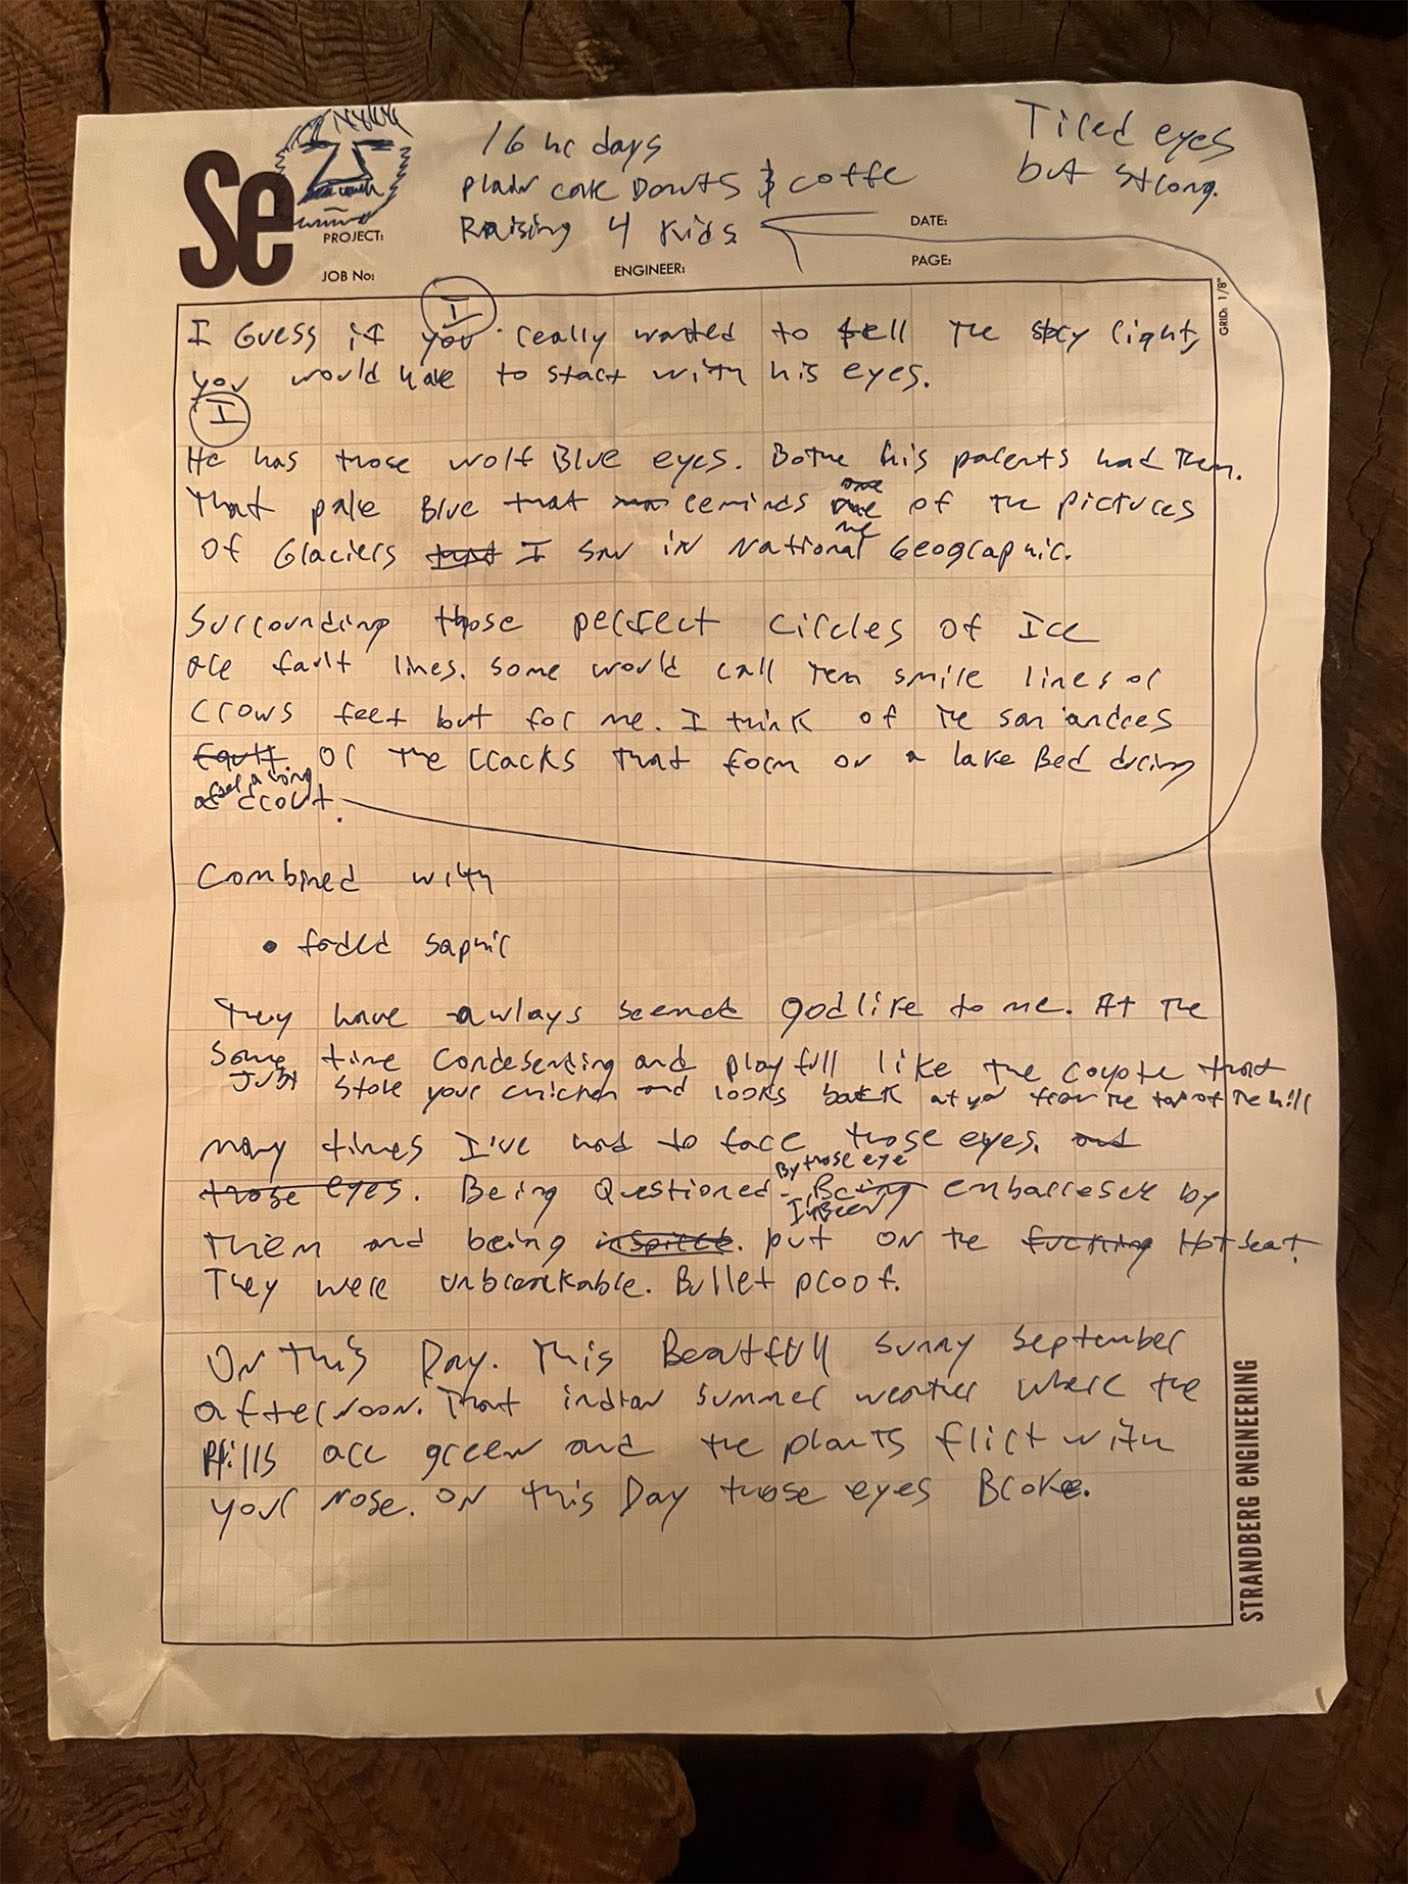 Se
16 hr days
plain cake Donuts & coffe
Raising 4 Kids
Tired eyes
but strong.
PROJECT:
DATE:
JOB No:
ENGINEER:
PAGE:
GRID: 1/8"
I
I Guess if you really wanted to tell The story right,
you would have to start with his eyes.
I
He has those wolf Blue eyes. Bothe his parents had Them.
That pale Blue that reminds me of The pictures
of Glaciers that I saw in National Geographic.
Surrounding those perfect circles of Ice
are fault lines. some would call Them smile lines or
crows feet but for me. I think of The san andres
Fault or The cracks that form on a lake Bed during
after a long
drout.
Combined with
• faded saphir
They have awlays seemed godlike to me. At The
same time condesending and playfull like The coyote that
Just stole your chicken and looks back at you from The top of The hill
many times I've had to face those eyes. and
those eyes. Being Questioned By those eye Being embarresed by
I've Been
Them and being inspired. put on The fucking Hot seat.
They were unbreakable. Bullet proof.
On This Day. This Beautfull sunny september
afternoon. That indian summer weather where the
Hills are green and the plants flirt with
your nose. on this Day those eyes Broke.
STRANDBERG ENGINEERING